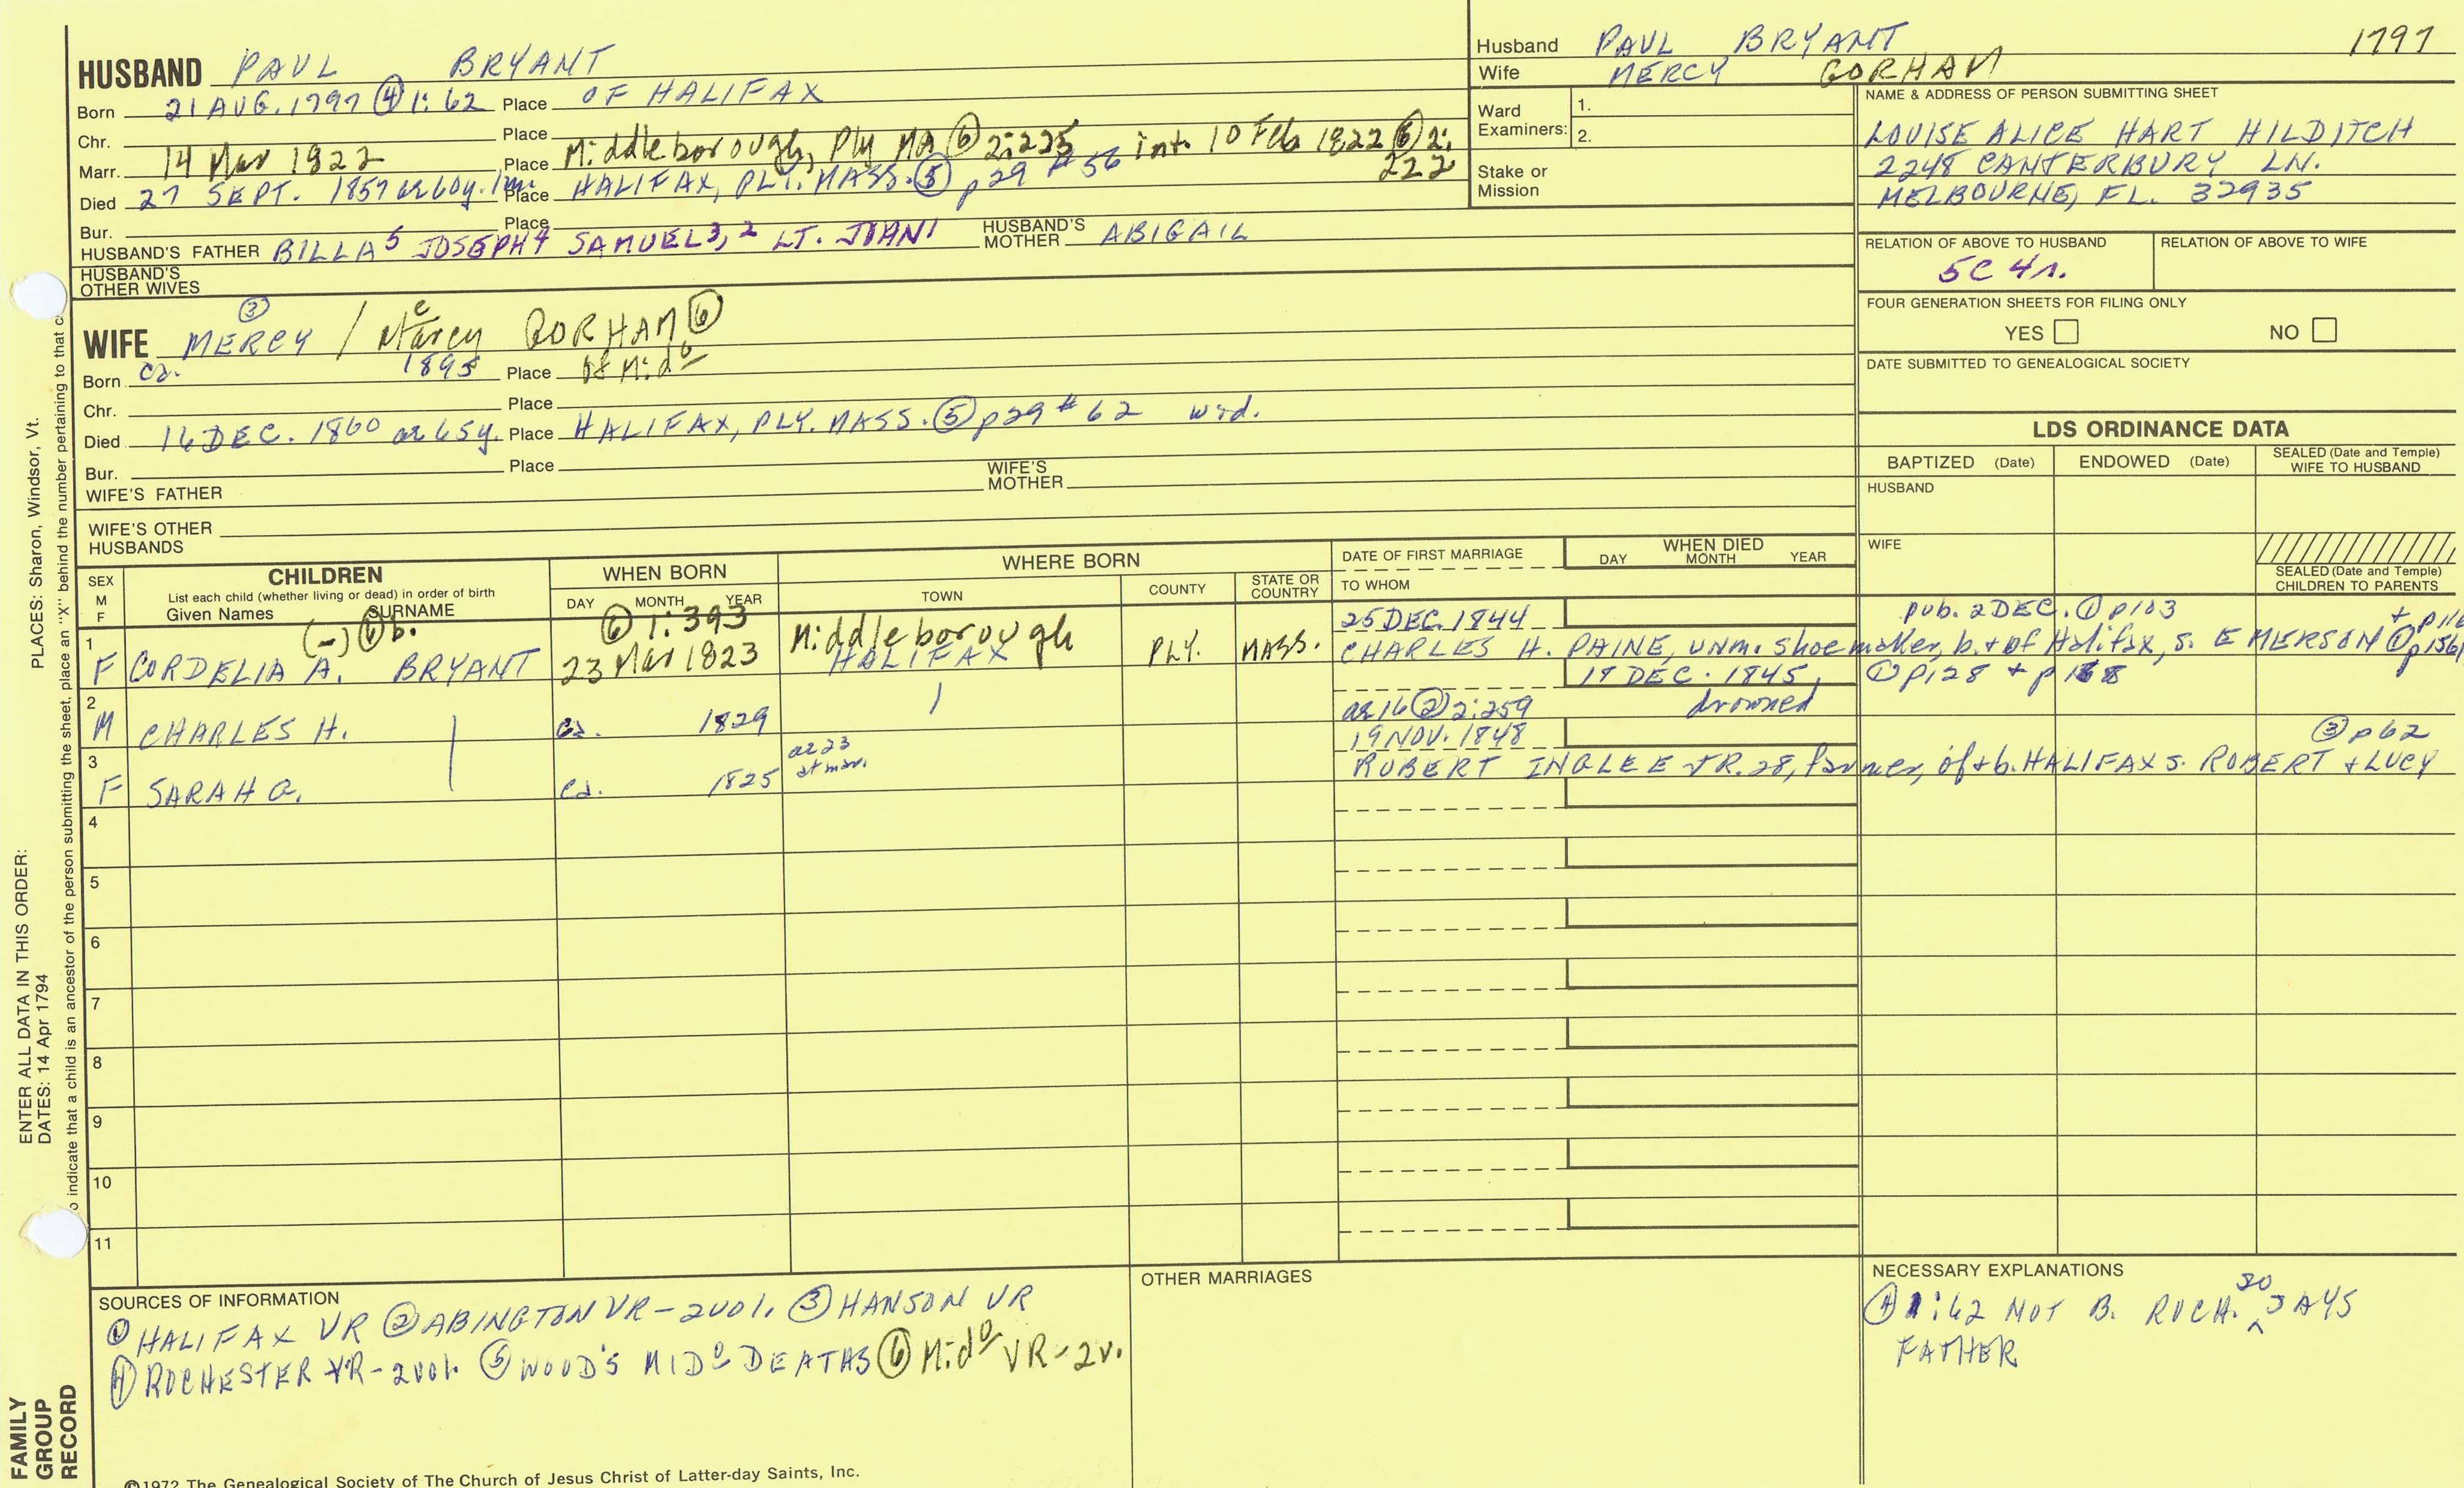 HUSBAND PAUL BRYANT
Born 21 AUG. 1797 ④ 1:62 Place OF HALIFAX
Chr. Place
Marr. 14 Mar 1822 Place Middleborough, Ply MA ⑥ 2:225 int. 10 Feb 1822 ⑥ 2:222
Died 27 SEPT. 1857 ae 60y. 1m. Place HALIFAX, PLY. MASS. ⑤ p29 #56
Bur. Place
HUSBAND'S FATHER BILLA5 JOSEPH4 SAMUEL3,2 LT. JOHN1 HUSBAND'S MOTHER ABIGAIL
HUSBAND'S OTHER WIVES
Husband PAUL BRYANT 1797
Wife MERCY GORHAM
Ward Examiners: 1.
2.
Stake or Mission
NAME & ADDRESS OF PERSON SUBMITTING SHEET
LOUISE ALICE HART HILDITCH
2248 CANTERBURY LN.
MELBOURNE, FL. 32935
RELATION OF ABOVE TO HUSBAND RELATION OF ABOVE TO WIFE
5C 4r.
FOUR GENERATION SHEETS FOR FILING ONLY
YES NO
DATE SUBMITTED TO GENEALOGICAL SOCIETY
③ e
WIFE MERCY / Marcy GORHAM ⑥
Born ca. 1895 Place of Mido
Chr. Place
Died 16 DEC. 1860 ae 65y. Place HALIFAX, PLY. MASS. ⑤ p29 #62 wid.
Bur. Place
WIFE'S FATHER WIFE'S MOTHER
WIFE'S OTHER HUSBANDS
LDS ORDINANCE DATA
BAPTIZED (Date) ENDOWED (Date) SEALED (Date and Temple) WIFE TO HUSBAND
HUSBAND
WIFE
SEALED (Date and Temple) CHILDREN TO PARENTS
SEX M F
CHILDREN
List each child (whether living or dead) in order of birth
Given Names SURNAME
WHEN BORN
DAY MONTH YEAR
WHERE BORN
TOWN COUNTY STATE OR COUNTRY
DATE OF FIRST MARRIAGE
TO WHOM
WHEN DIED
DAY MONTH YEAR
(-) ⑥ b. ⑥ 1:393 Middleborough 25 DEC. 1844 pub. 2 DEC. ① p103
1 F CORDELIA A. BRYANT 23 Mar 1823 HALIFAX PLY. MASS. CHARLES H. PAINE, unm. shoemaker, b. + of Halifax, s. EMERSON ①
19 DEC. 1845, ① p128
2 M CHARLES H. ca. 1829 ae 16 ② 2:259 drowned
19 NOV. 1848 ③ p62
3 F SARAH G. ca. 1825 ae 23 at mar. ROBERT INGLEE JR. 28, farmer, of + b. HALIFAX s. ROBERT + LUCY
4
5
6
7
8
9
10
11
SOURCES OF INFORMATION
① HALIFAX VR ② ABINGTON VR-2vol. ③ HANSON VR
④ ROCHESTER VR-2vol. ⑤ WOOD'S MIDo DEATHS ⑥ Mido VR-2v.
OTHER MARRIAGES
NECESSARY EXPLANATIONS
④ 1:62 NOT B. ROCH. SO SAYS
FATHER
©1972 The Genealogical Society of The Church of Jesus Christ of Latter-day Saints, Inc.
FAMILY GROUP RECORD
ENTER ALL DATA IN THIS ORDER:
DATES: 14 Apr 1794
PLACES: Sharon, Windsor, Vt.
o indicate that a child is an ancestor of the person submitting the sheet, place an "X" behind the number pertaining to that c